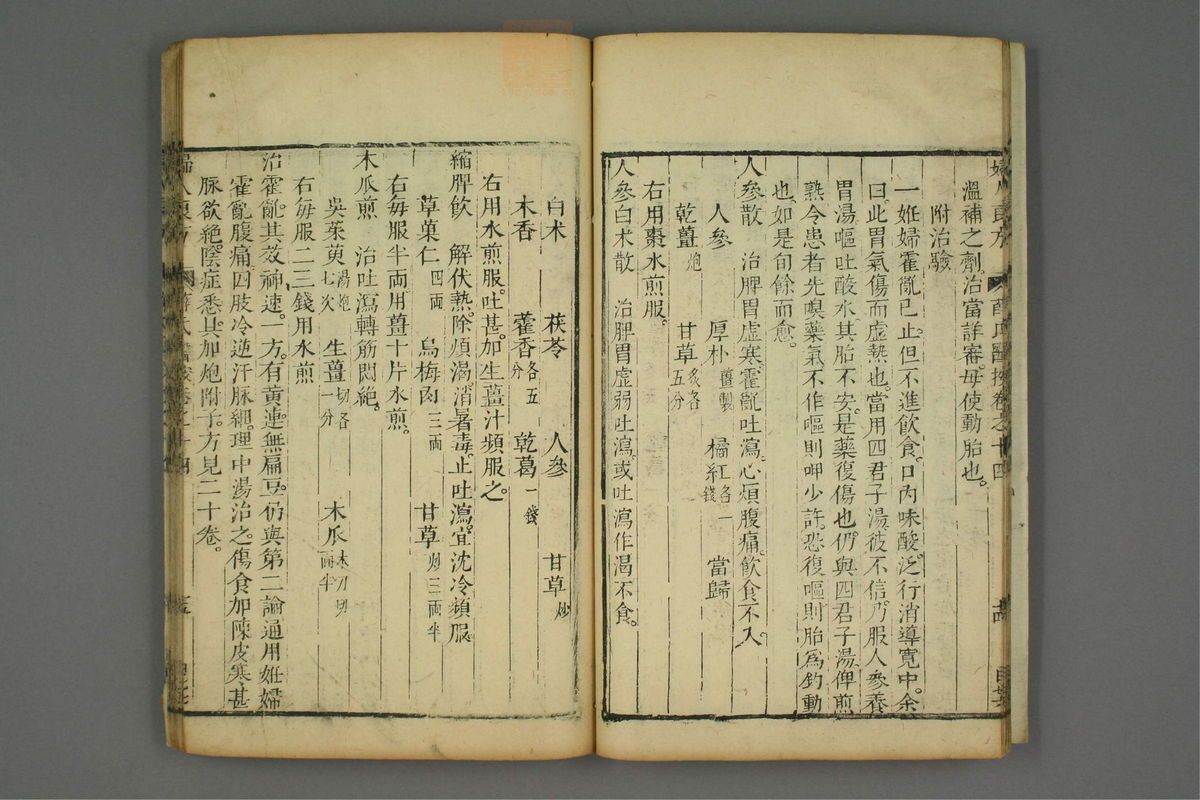 溫補之劑。治當詳審。毋使動胎也。
附治驗
一姙婦霍亂已止。但不進飲食。口內味酸。泛行消導寬中。余
曰。此胃氣傷而虛熱也。當用四君子湯。彼不信。乃服人參養
胃湯。嘔吐酸水。其胎不安。是藥復傷也。仍與四君子湯。俾煎
熟。令患者先嗅藥氣。不作嘔則呷少許。恐復嘔則胎爲釣動
也。如是旬餘而愈。
人參散 治脾胃虛寒。霍亂吐瀉。心煩腹痛。飲食不入。
人參 厚朴薑製 橘紅各一錢 當歸
乾薑炮 甘草炙各五分
右用棗水煎服。
人參白术散 治脾胃虛弱吐瀉。或吐瀉作渴不食。
白术 茯苓 人參 甘草炒
木香 藿香各五分 乾葛一錢
右用水煎服。吐甚。加生薑汁頻服之。
縮脾飲 解伏熱。除煩渴。消暑毒。止吐瀉。宜沈冷頻服。
草菓仁四兩 烏梅肉三兩 甘草炒三兩半
右每服半兩。用薑十片水煎。
木瓜煎 治吐瀉轉筋悶絶。
吳茱萸湯炮七次 生薑切各一分 木瓜木刀切兩半
右每服二三錢。用水煎
治霍亂。其效神速。一方。有黃連無扁豆。仍與第二論通用姙婦
霍亂腹痛。四肢冷逆汗脉細。理中湯治之。傷食加陳皮。寒甚
脉欲絶。陰症悉具。加炮附子。方見二十卷。